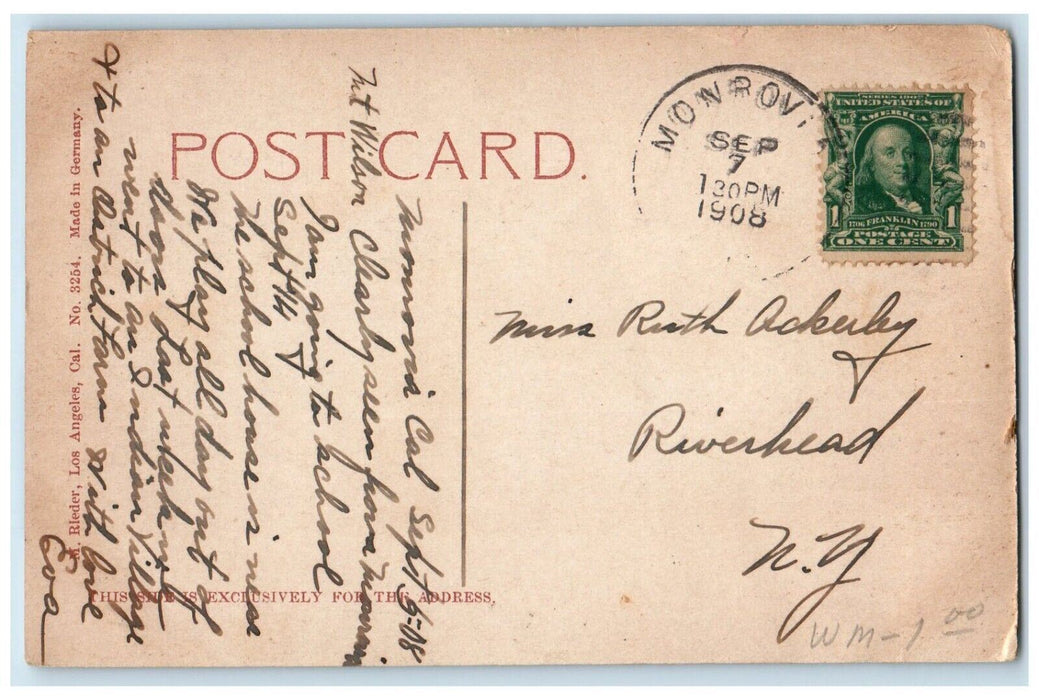 POST CARD.
MONROVI
SEP
7
1 30 PM
1908
SERIES 1902
UNITED STATES OF
AMERICA
1706 FRANKLIN 1790
POSTAGE
1 ONE CENT 1
Monrovia Cal Sept 5-08
Mt Wilson
Charley seen from
I am going to school
Sept 14
The school house is near
We play all day out of
doors Last week we
went to an Indian Village
& to an Ostrich Farm With love
Eva
M. Rieder, Los Angeles, Cal. No. 3254. Made in Germany.
THIS SIDE IS EXCLUSIVELY FOR THE ADDRESS.
Miss Ruth Ackerley
Riverhead
N.Y
WM-1 00